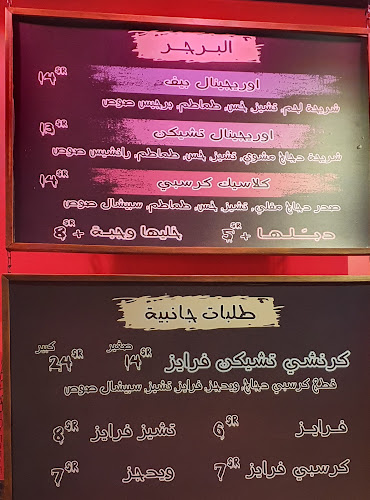 البرجر
اوريجينال بيف 14 SR
شريحة لحم، تشيز، خس، طماطم، برجيس صوص
اوريجينال تشيكن 13 SR
شريحة دجاج مشوي، تشيز، خس، طماطم، رانشيس صوص
كلاسيك كرسبي 14 SR
صدر دجاج مقلي، تشيز، خس، طماطم، سبيشال صوص
دبــلــهــا + 5 SR خليها وجبة + 8 SR
طلبات جانبية
صغير كبير
كرنشي تشيكن فرايز 14 SR 24 SR
قطع كرسبي دجاج، ويدجز، فرايز، تشيز، سبيشال صوص
فــرايــز 6 SR تشيز فرايز 8 SR
كرسبي فرايز 7 SR ويدجز 7 SR